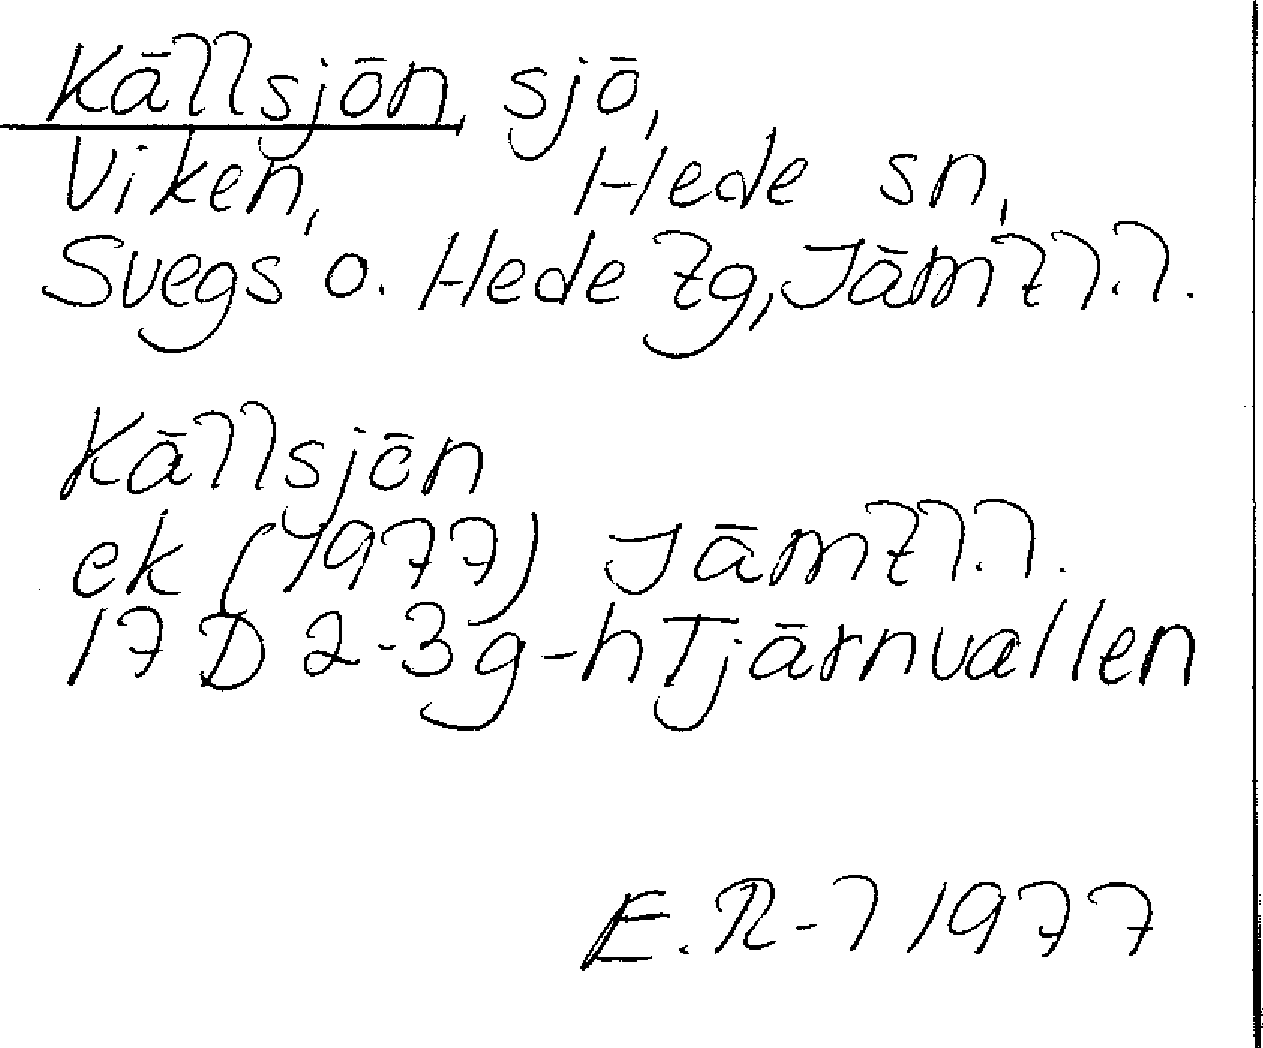 Källsjön sjö,
Viken, Hede sn,
Svegs o. Hede tg, Jämtl.l.
Källsjön
ek (1977) Jämtl.l.
17 D 2-3 g-h Tjärnvallen
E.R-l 1977